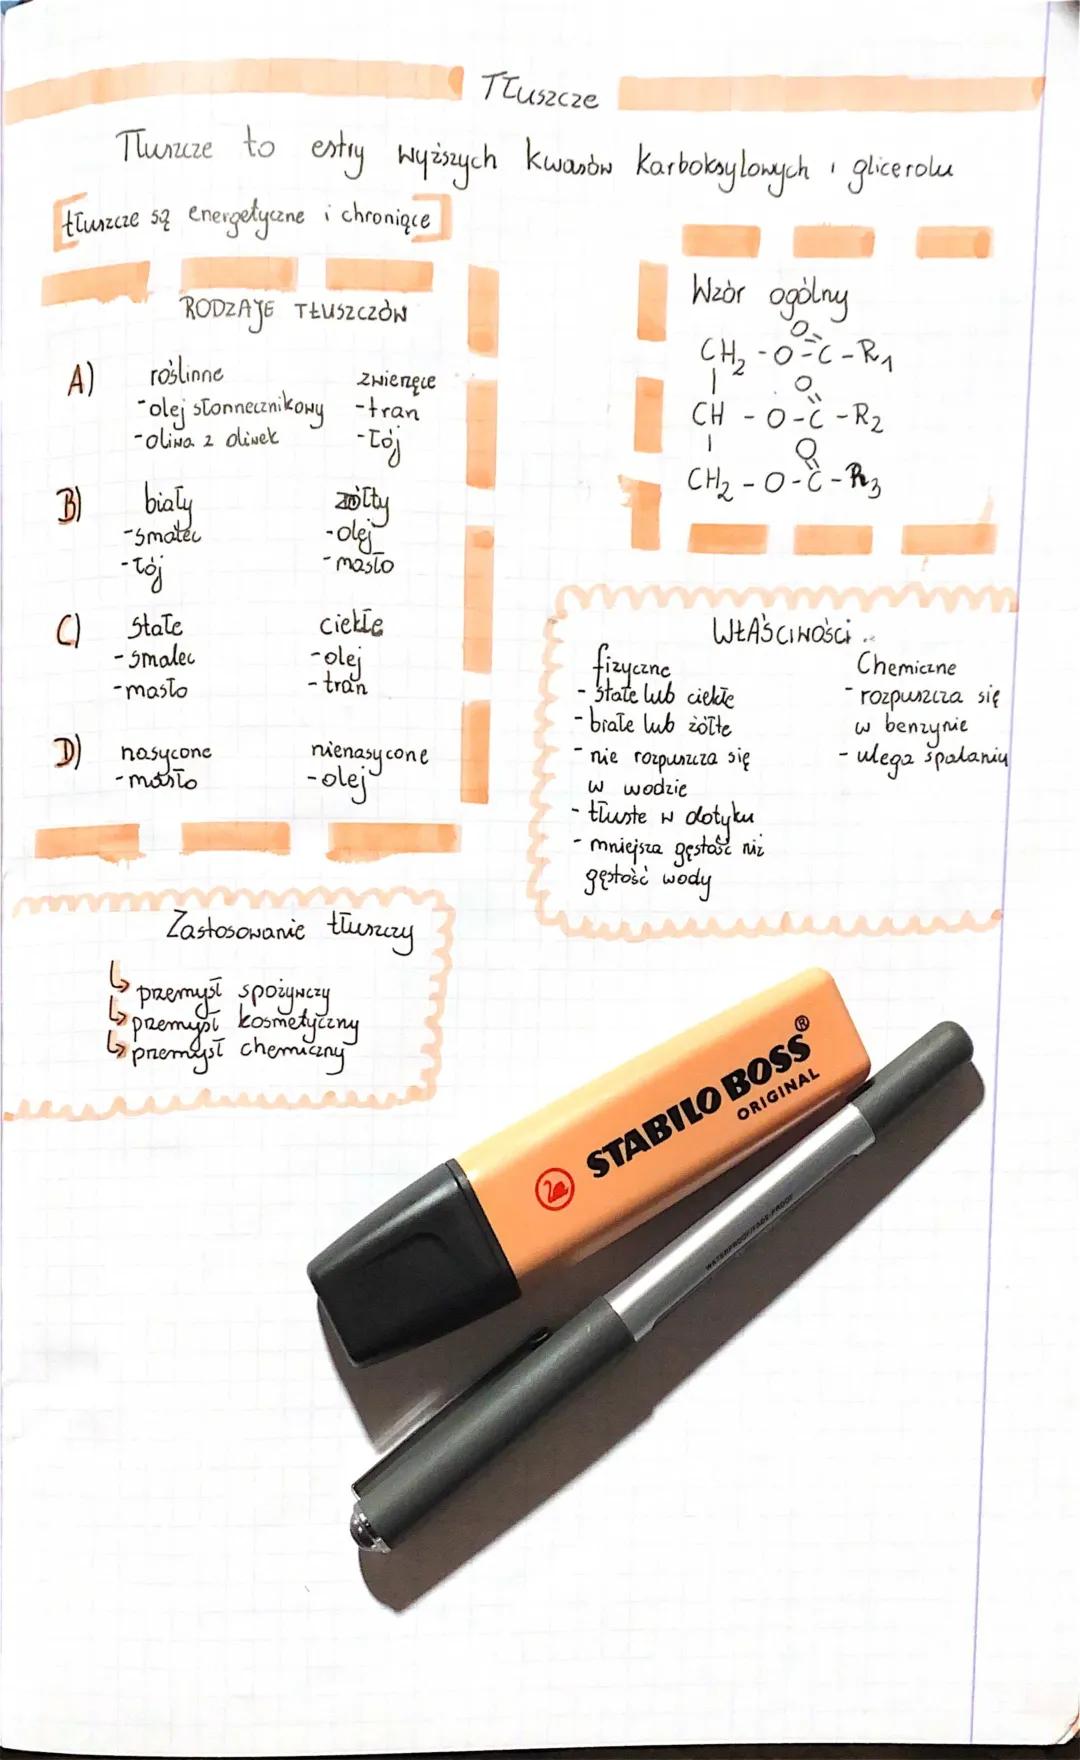 Tłuszcze
Tłuszcze to estry wyższych kwasów karboksylowych i glicerolu
tłuszcze są energetyczne i chroniące
RODZAJE TŁUSZCZÓW
A) roślinne zwierzęce
-olej słonecznikowy -tran
-oliwa z oliwek -łój
B) biały żółty
-smalec -olej
-łój -masło
C) stałe ciekłe
-smalec -olej
-masło -tran
D) nasycone nienasycone
-masło -olej
Wzór ogólny
O
CH2 - O - C - R1
O
CH - O - C - R2
O
CH2 - O - C - R3
WŁAŚCIWOŚCI
fizyczne Chemiczne
- stałe lub ciekłe - rozpuszcza się
- białe lub żółte w benzynie
- nie rozpuszcza się - ulega spalaniu
w wodzie
- tłuste w dotyku
- mniejsza gęstość niż
gęstość wody
Zastosowanie tłuszczy
↳ przemysł spożywczy
↳ przemysł kosmetyczny
↳ przemysł chemiczny
STABILO BOSS®
ORIGINAL
WATERPROOF/FADE-PROOF